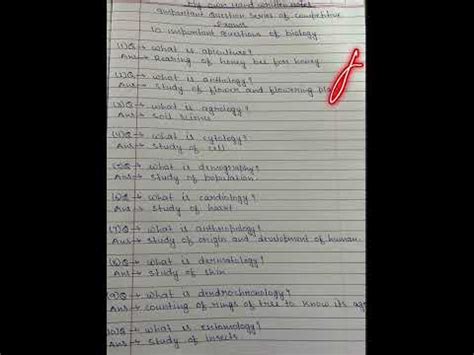 My own Hand written notes
Important Question Series of Competitive
Exams
10 important questions of biology
(1)Q→ what is apiculture?
Ans→ Rearing of honey bee for honey.
(2)Q→ what is anthology?
Ans→ study of flower and flowering pla
(3)Q→ what is agrology?
Ans→ Soil science
(4)Q→ what is cytology?
Ans→ study of cell.
(5)Q→ what is demography?
Ans→ study of population.
(6)Q→ what is cardiology?
Ans→ study of heart
(7)Q→ what is anthropology?
Ans→ study of origin and development of human.
(8)Q→ what is dermatology?
Ans→ study of skin
(9)Q→ what is dendrochronology?
Ans→ counting of rings of tree to know its age
(10)Q→ what is entomology?
Ans→ study of insects.